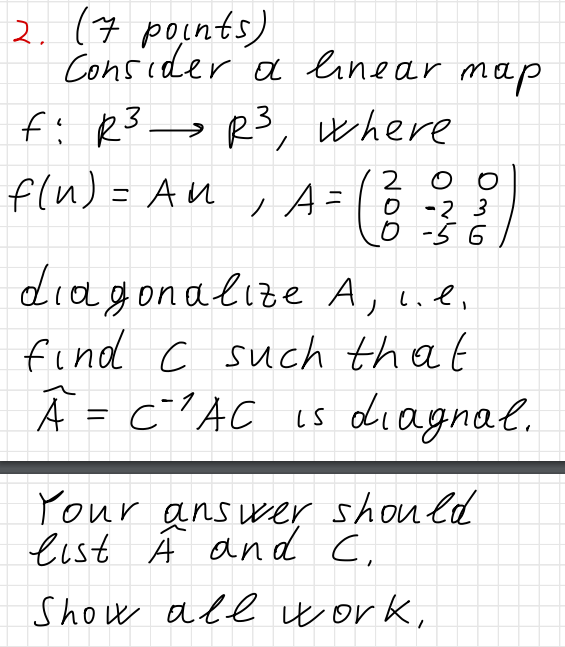 2. (7 points)
Consider a linear map
f: R³ → R³, where
f(u) = Au , A = (2 0 0
0 -2 3
0 -5 6)
diagonalize A, i.e.
find C such that
Â = C⁻¹AC is diagnal.
Your answer should
list Â and C.
Show all work.